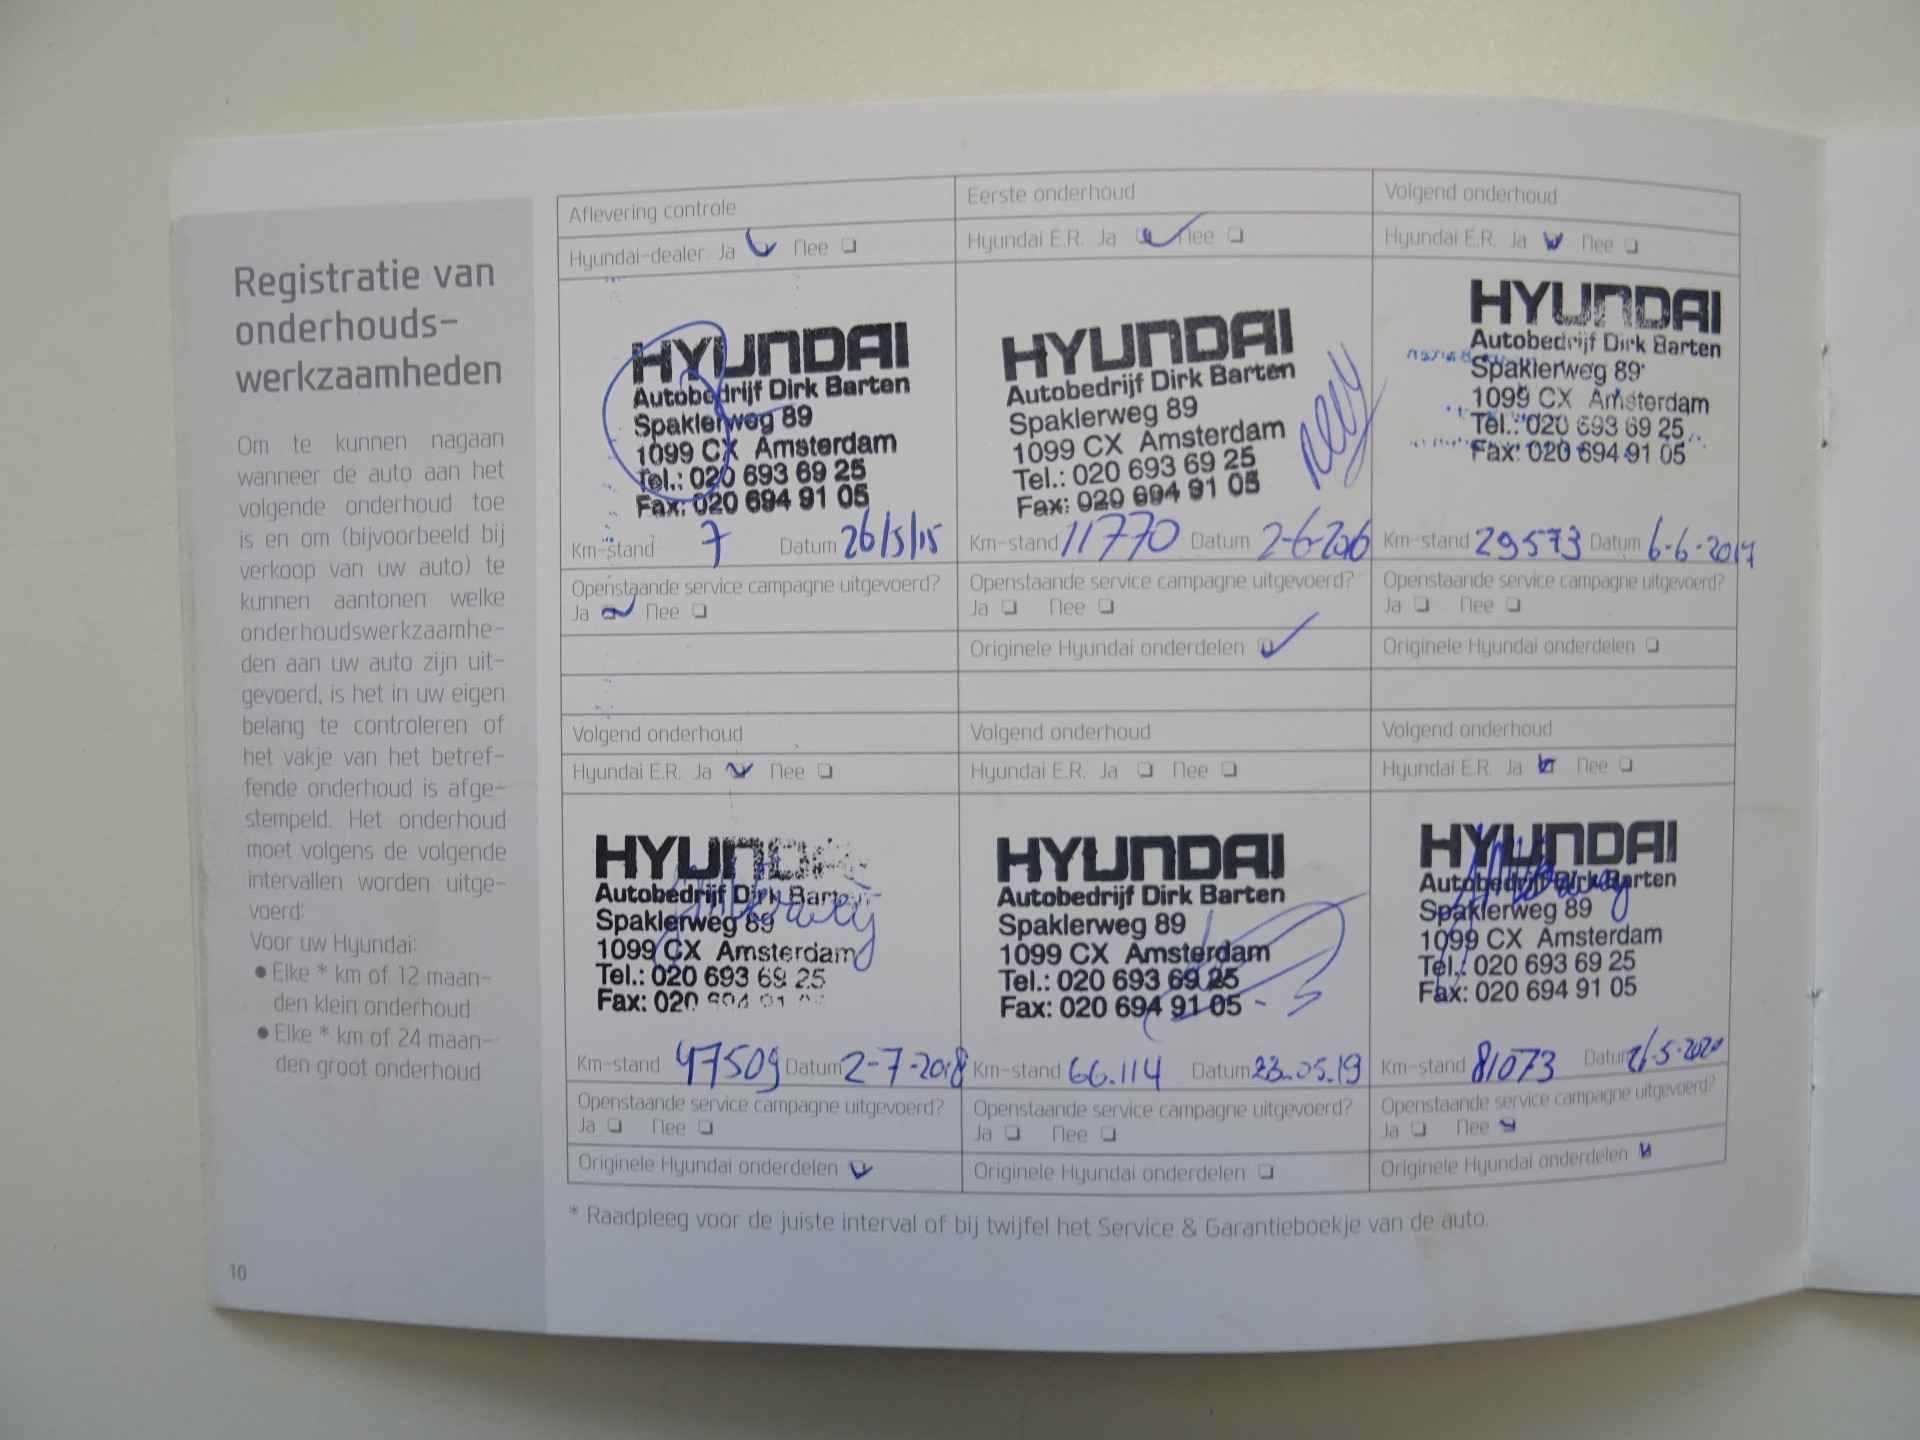 Registratie van
onderhouds-
werkzaamheden
Om te kunnen nagaan
wanneer de auto aan het
volgende onderhoud toe
is en om (bijvoorbeeld bij
verkoop van uw auto) te
kunnen aantonen welke
onderhoudswerkzaamhe-
den aan uw auto zijn uit-
gevoerd, is het in uw eigen
belang te controleren of
het vakje van het betref-
fende onderhoud is afge-
stempeld. Het onderhoud
moet volgens de volgende
intervallen worden uitge-
voerd:
Voor uw Hyundai:
• Elke * km of 12 maan-
den klein onderhoud
• Elke * km of 24 maan-
den groot onderhoud
10
Aflevering controle
Hyundai-dealer Ja Nee
HYUNDAI
Autobedrijf Dirk Barten
Spaklerweg 89
1099 CX Amsterdam
Tel.: 020 693 69 25
Fax: 020 694 91 05
Km-stand 7 Datum 26/5/15
Openstaande service campagne uitgevoerd?
Ja Nee
Eerste onderhoud
Hyundai E.R. Ja Nee
HYUNDAI
Autobedrijf Dirk Barten
Spaklerweg 89
1099 CX Amsterdam
Tel.: 020 693 69 25
Fax: 020 694 91 05
Km-stand 11770 Datum 2-6-2016
Openstaande service campagne uitgevoerd?
Ja Nee
Originele Hyundai onderdelen
Volgend onderhoud
Hyundai E.R. Ja Nee
HYUNDAI
Autobedrijf Dirk Barten
Spaklerweg 89
1099 CX Amsterdam
Tel.: 020 693 69 25
Fax: 020 694 91 05
Km-stand 29573 Datum 6-6-2017
Openstaande service campagne uitgevoerd?
Ja Nee
Originele Hyundai onderdelen
Volgend onderhoud
Hyundai E.R. Ja Nee
HYUNDAI
Autobedrijf Dirk Barten
Spaklerweg 89
1099 CX Amsterdam
Tel.: 020 693 69 25
Fax: 020 694 91 05
Km-stand 47509 Datum 2-7-2018
Openstaande service campagne uitgevoerd?
Ja Nee
Originele Hyundai onderdelen
Volgend onderhoud
Hyundai E.R. Ja Nee
HYUNDAI
Autobedrijf Dirk Barten
Spaklerweg 89
1099 CX Amsterdam
Tel.: 020 693 69 25
Fax: 020 694 91 05
Km-stand 66.114 Datum 23.05.19
Openstaande service campagne uitgevoerd?
Ja Nee
Originele Hyundai onderdelen
Volgend onderhoud
Hyundai E.R. Ja Nee
HYUNDAI
Autobedrijf Dirk Barten
Spaklerweg 89
1099 CX Amsterdam
Tel.: 020 693 69 25
Fax: 020 694 91 05
Km-stand 81073 Datum
Openstaande service campagne uitgevoerd?
Ja Nee
Originele Hyundai onderdelen
* Raadpleeg voor de juiste interval of bij twijfel het Service & Garantieboekje van de auto.